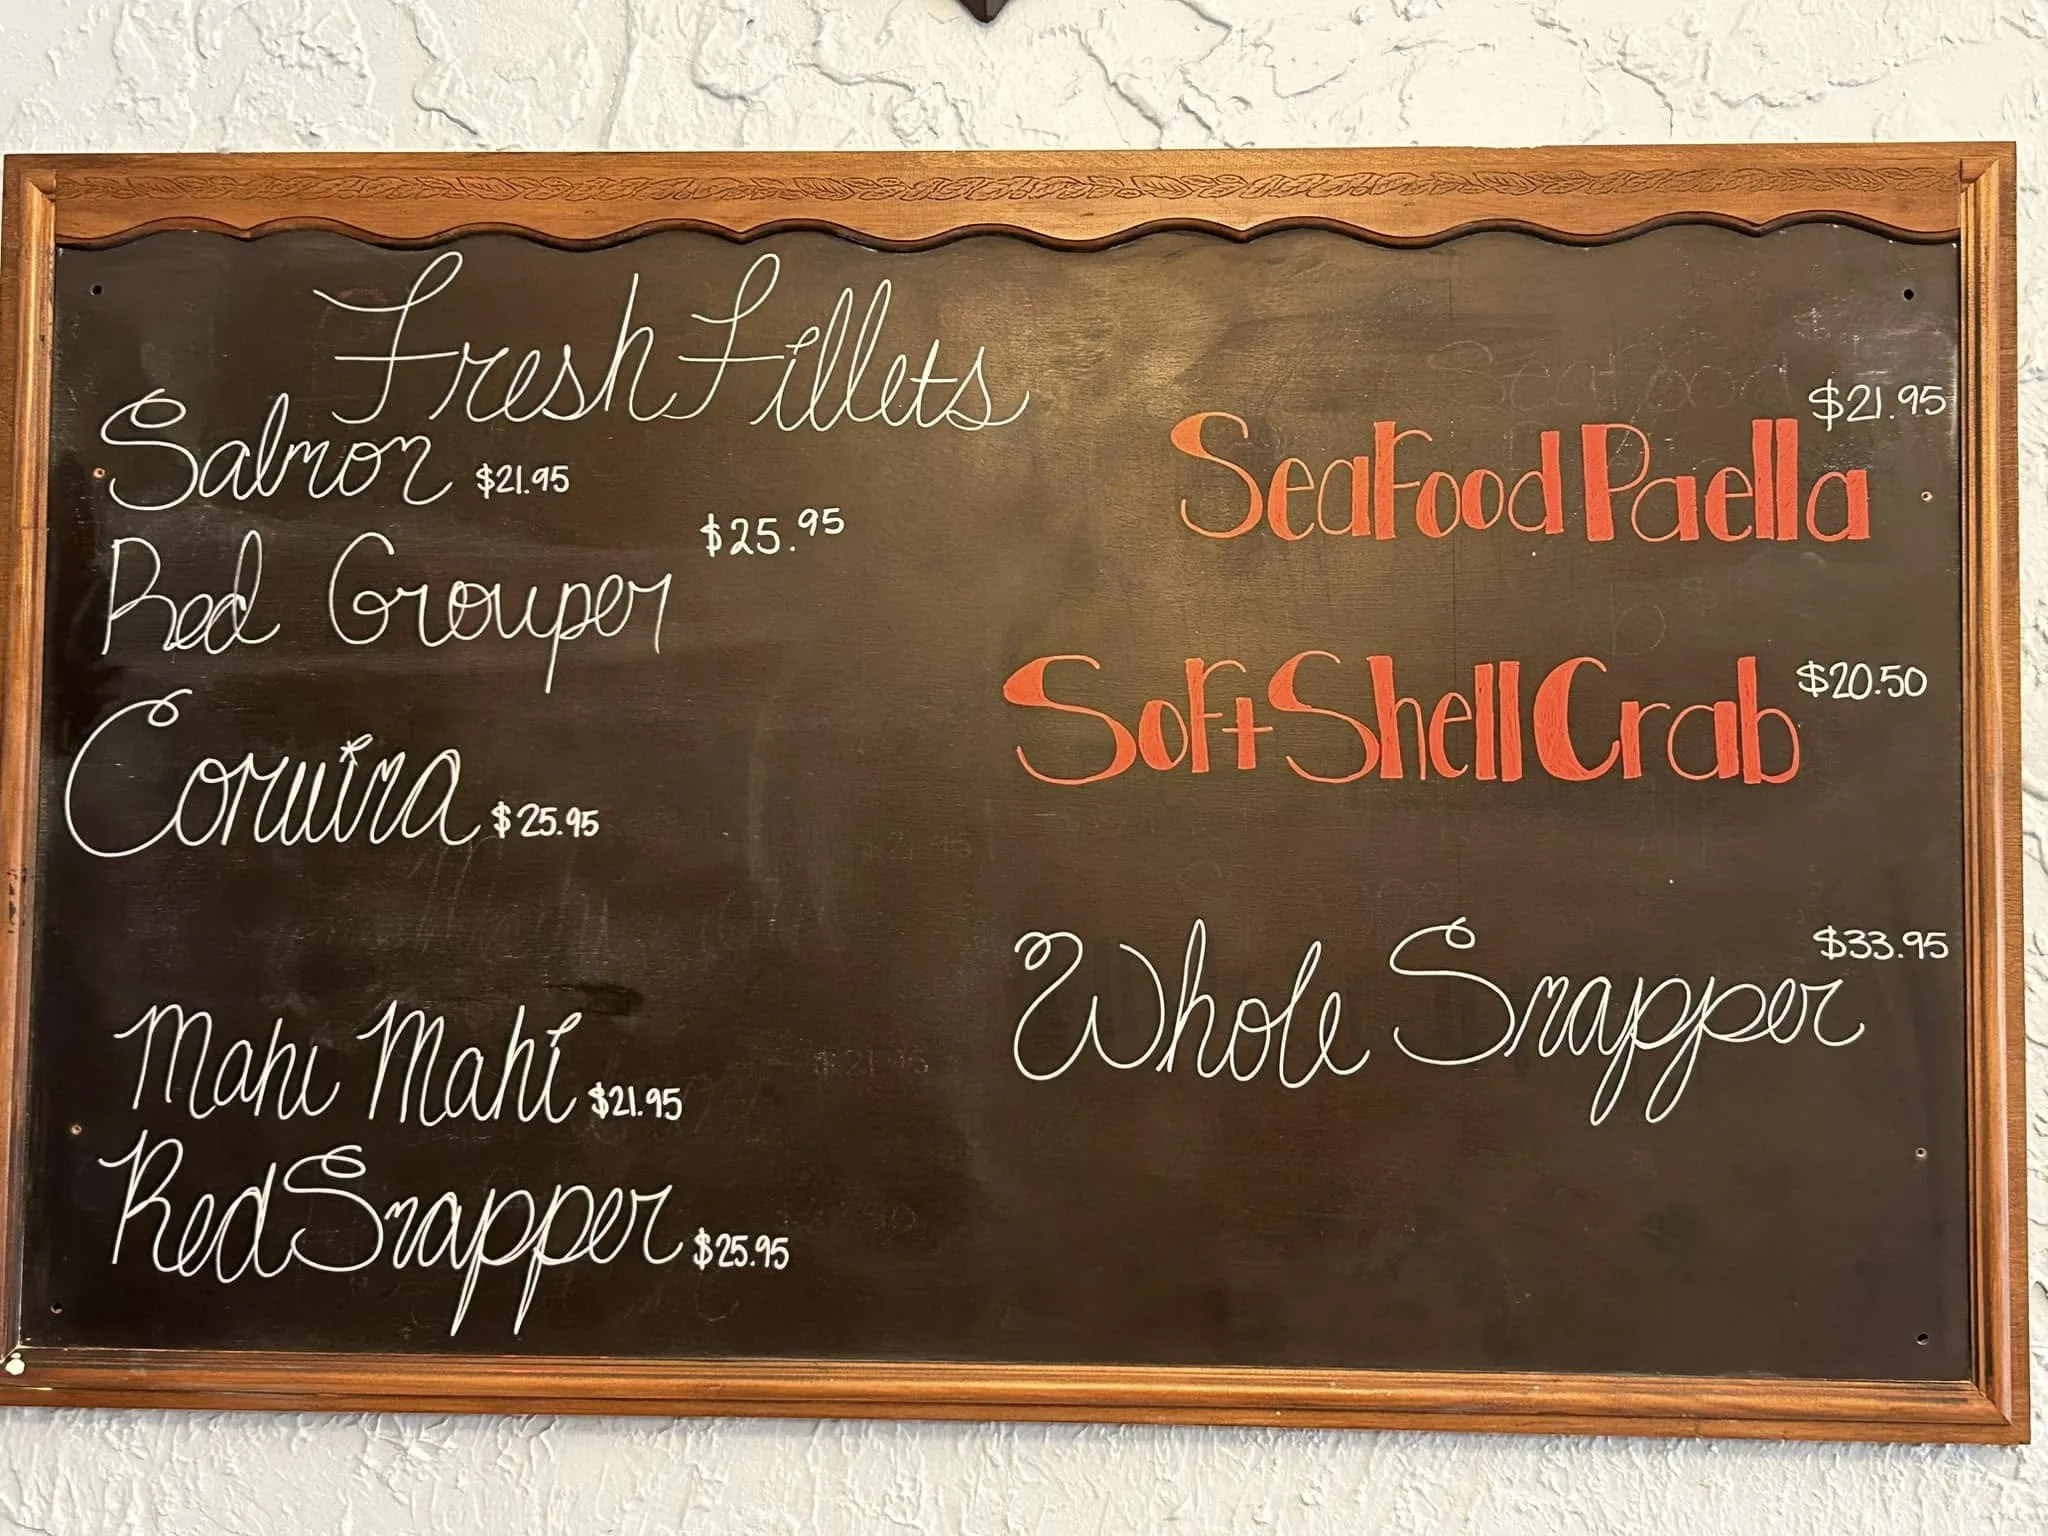 Fresh Fillets
Salmon $21.95
Red Grouper $25.95
Coruina $25.95
Mahi Mahi $21.95
Red Snapper $25.95
Seafood Paella $21.95
Soft Shell Crab $20.50
Whole Snapper $33.95